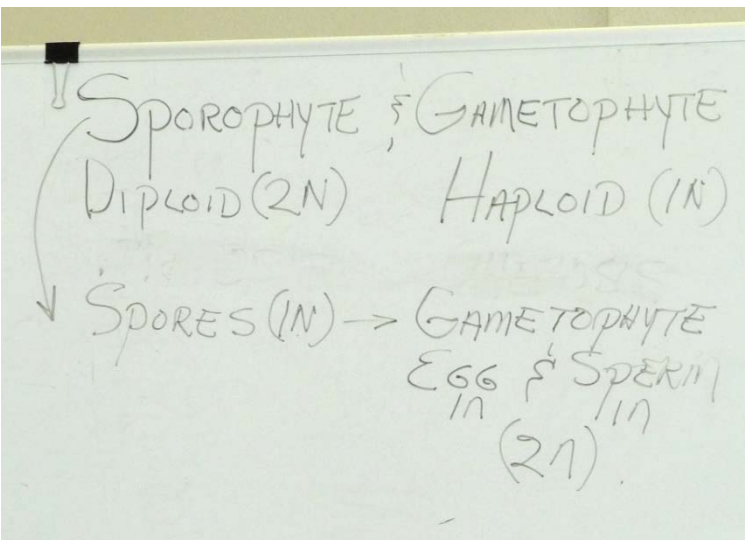 SPOROPHYTE & GAMETOPHYTE
DIPLOID (2N) HAPLOID (1N)
SPORES (1N) → GAMETOPHYTE
EGG & SPERM
1n 1n
(2n)